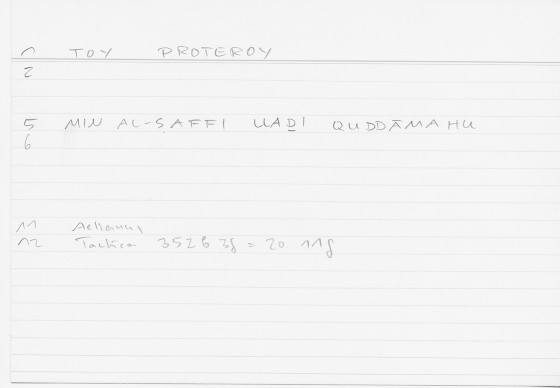 1 TOY PROTEROY
2
5 MIN AL-ṢAFFI LLAḎI QUDDĀMAHU
6
11 Aelianus
12 Tactica 352b 3f = 20 11f